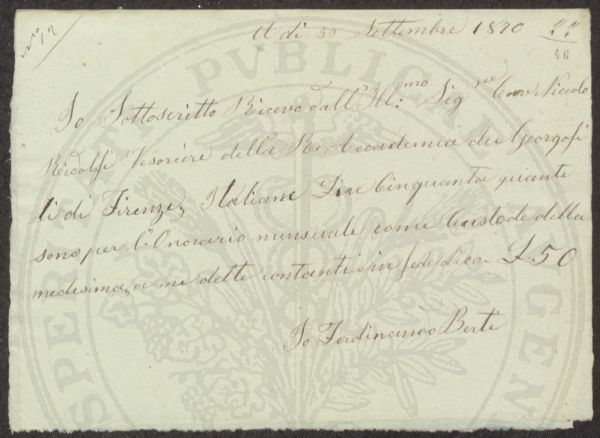 N° 12
A dì 30 Settembre 1870
46
Io Sottoscritto Ricevo dall'Ill:mo Sigre Cav Niccolo
Ridolfi Tesoriere della R. Accademia dei Georgofi
li di Firenze, Italiane Lire Cinquanta quante
sono per l'Onorario mensuale come Custode della
medesima, a me dette contanti in fede dico - £ 50
Io Ferdinando Berti
PUBLICAE
PROSPERITATI AUGENDAE